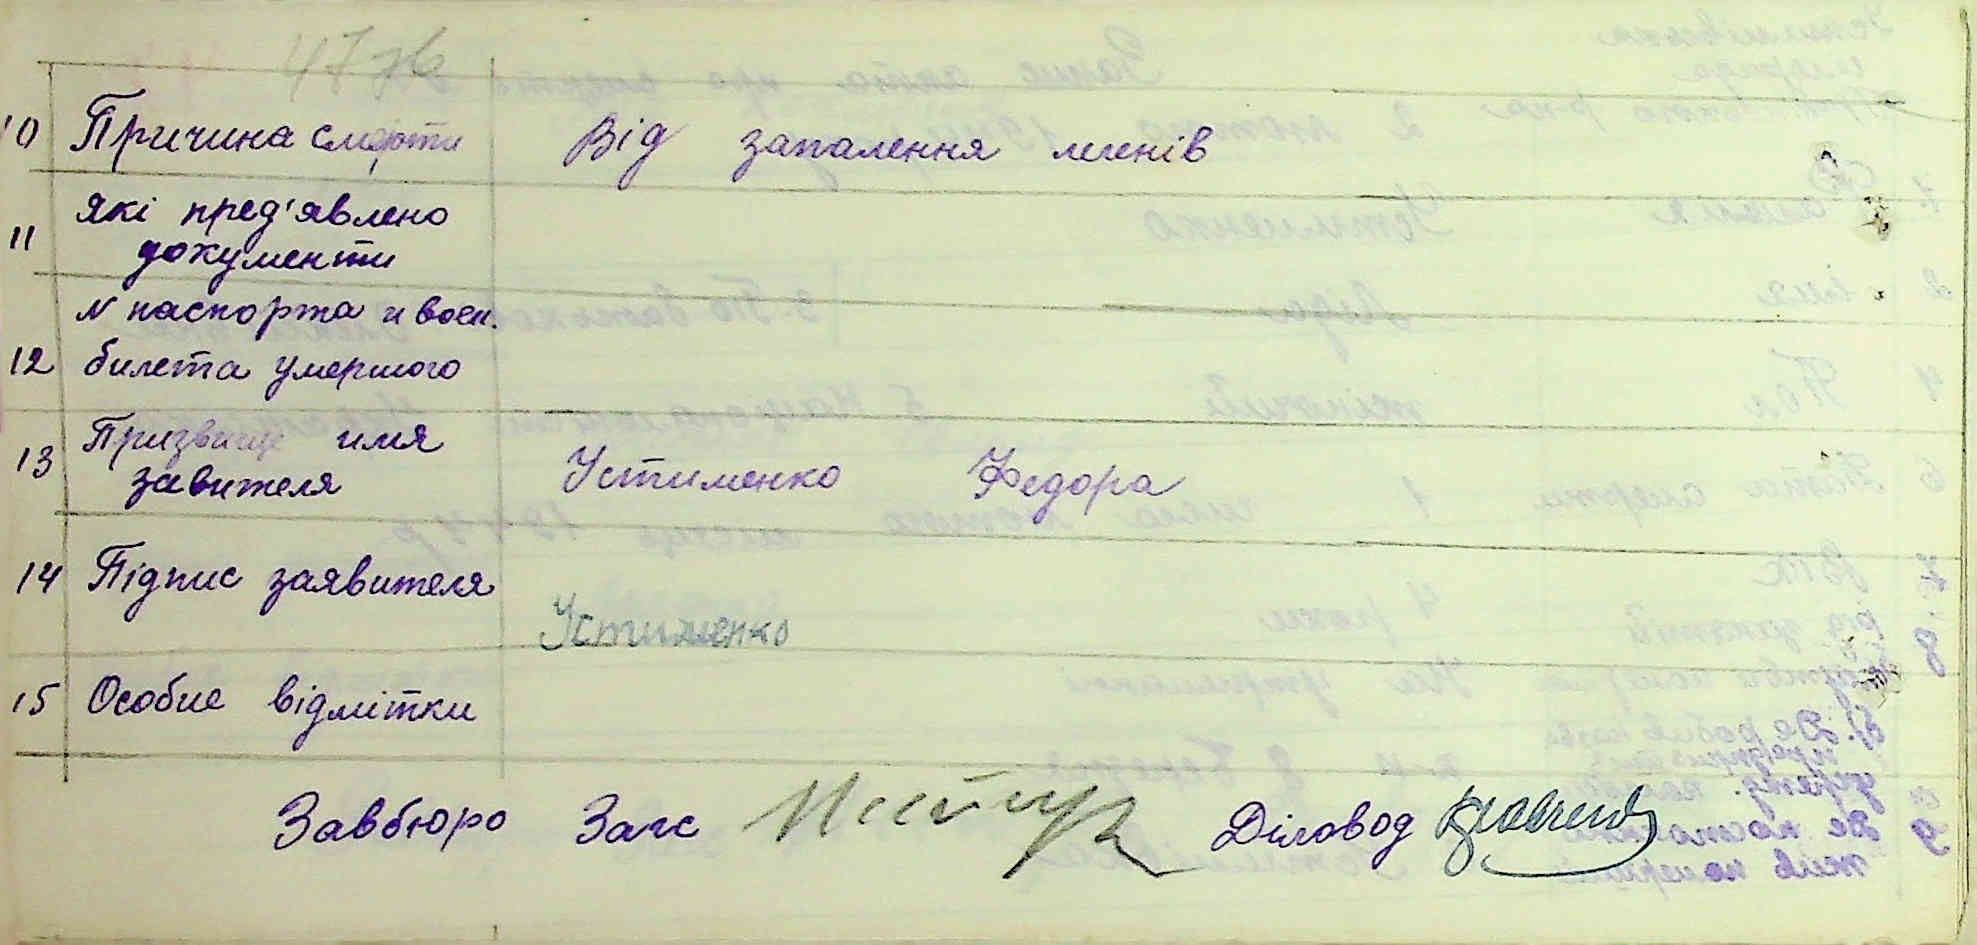 10 Причина смерти Від запалення легенів
які пред'явлено
11 документи
N паспорта и воен.
12 билета умершого
Призвище имя
13 завителя Устименко Федора
14 Підпис заявителя Устименко
15 Особие відмітки
Завбюро Загс Діловод